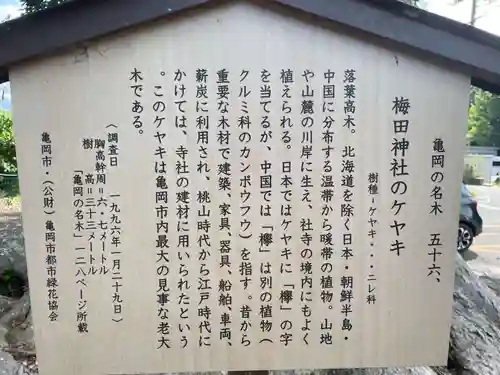 亀岡の名木 五十六、
梅田神社のケヤキ
樹種=ケヤキ・・・ニレ科
落葉高木。北海道を除く日本・朝鮮半島・
中国に分布する温帯から暖帯の植物。山地
や山麓の川岸に生え、社寺の境内にもよく
植えられる。日本ではケヤキに「欅」の字
を当てるが、中国では「欅」は別の植物（
クルミ科のカンポウフウ）を指す。昔から
重要な木材で建築、家具、器具、船舶、車両、
薪炭に利用され、桃山時代から江戸時代に
かけては、寺社の建材に用いられたという
。このケヤキは亀岡市内最大の見事な老大
木である。
（調査日 一九九六年一月二十九日）
胸高幹周=六・七メートル
樹 高=三十三メートル
「亀岡の名木」一二八ページ所載
亀岡市・（公財）亀岡市都市緑花協会